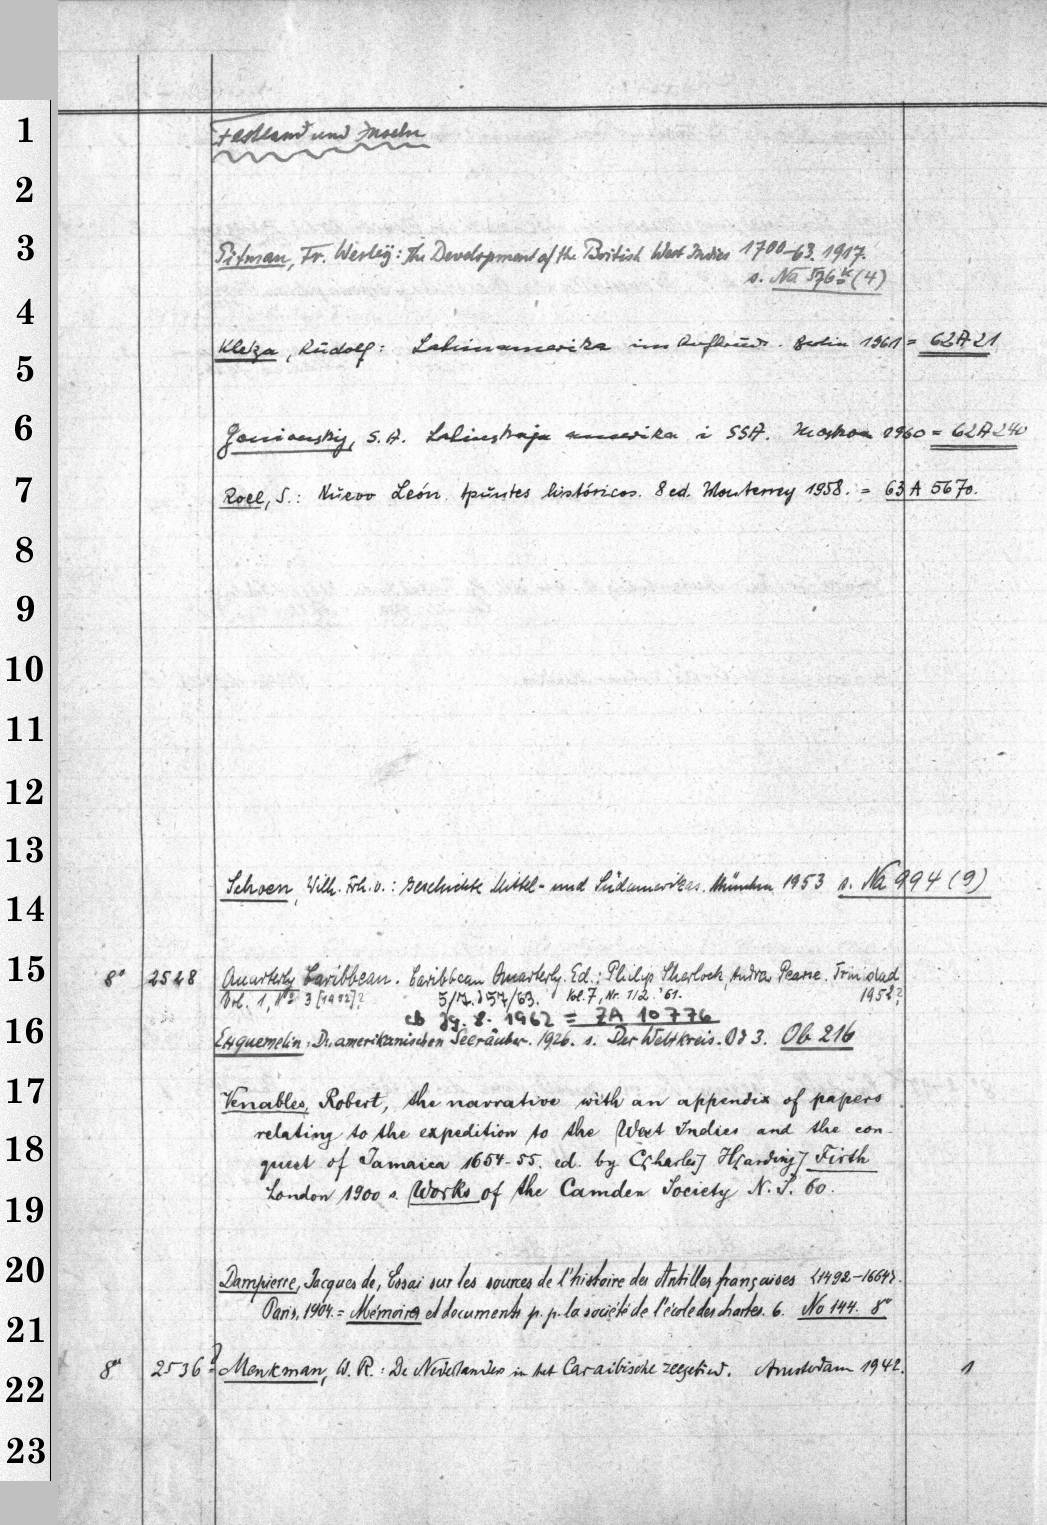 1
Festland und Inseln
2
3
Pitman, Fr. Wesley: The Development of the British West Indies 1700–63. 1917.
s. Na 576 k (4)
4
Kleza, Rudolf: Lateinamerika im Aufbruch. Berlin 1961 = 62 A 21
5
6
Gonionskij, S. A. Latinskaja amerika i SSA. Moskva 1960 = 62 A 240
7
Roel, S.: Nuevo León. Apuntes históricos. 8 ed. Monterrey 1958. = 63 A 5670.
8
9
10
11
12
13
Schoen, Wilh. Frh. v.: Geschichte Mittel- und Südamerikas. München 1953 s. Na 994 (9)
14
15
8° 2528 Quarterly Caribbean. Caribbean Quarterly. Ed.: Philip Sherlock, Andrew Pearse. Trinidad
Vol. 1, No 3 [1952]? 5/7. 1957/63. Vol. 7, Nr. 1/2. '61. 1952?
ab Jg. 8. 1962 = ZA 10776
16
Exquemelin: Die amerikanischen Seeräuber. 1926. s. Der Weltkreis. Bd 3. Ob 216
17
Venables, Robert, the narrative with an appendix of papers
relating to the expedition to the West Indies and the con-
18
quest of Jamaica 1654-55. ed. by C[harles] H[arding] Firth
London 1900 s. Works of the Camden Society N. S. 60.
19
20
Dampierre, Jacques de, Essai sur les sources de l'histoire des Antilles françaises (1492–1664).
Paris, 1904. = Mémoires et documents p. p. la société de l'école des chartes. 6. No 144. 8°
21
8° 2536 Menkman, W. R.: De Nederlanders in het Caraibische zeegebied. Amsterdam 1942. 1
22
23